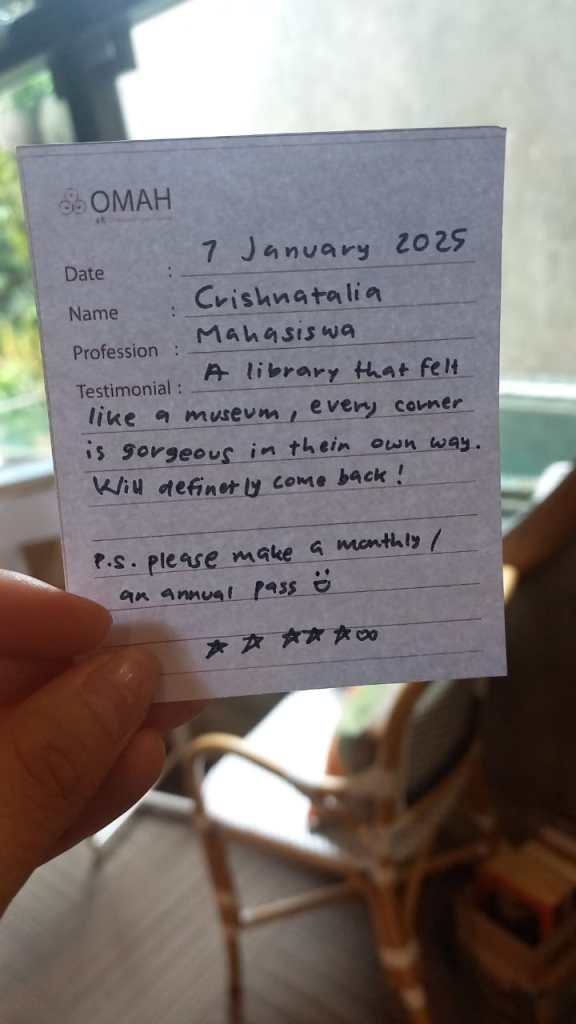 OMAH
Date : 7 January 2025
Name : Crishnatalia
Profession : Mahasiswa
Testimonial : A library that felt
like a museum, every corner
is gorgeous in thein own way.
Will definetly come back!
P.S. please make a monthly /
an annual pass